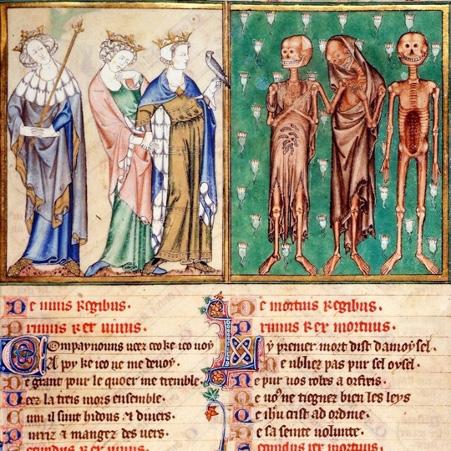 De uiuis Regibus.
Primus Rex uiuus.
Compaynouns ueez ceo ke ieo uoy
A poy ke ieo ne me deuoy.
De grant pour le quoer me tremble.
Veez la treis mors ensemble.
Cum il sunt hidous & diuers.
Puriz & mangez des uers.
Secundus rex uiuus.
De mortuis Regibus.
Primus Rex mortuus.
Ly premer mort dist damoysel.
Ne ubliez pas pur sel oysel.
Ne pur uos robes a orfreis.
Qe uoꝰ ne tiegnez bien les leys
Qe ihu crist ad ordine.
De sa seinte uolunte.
Secundus rex mortuus.